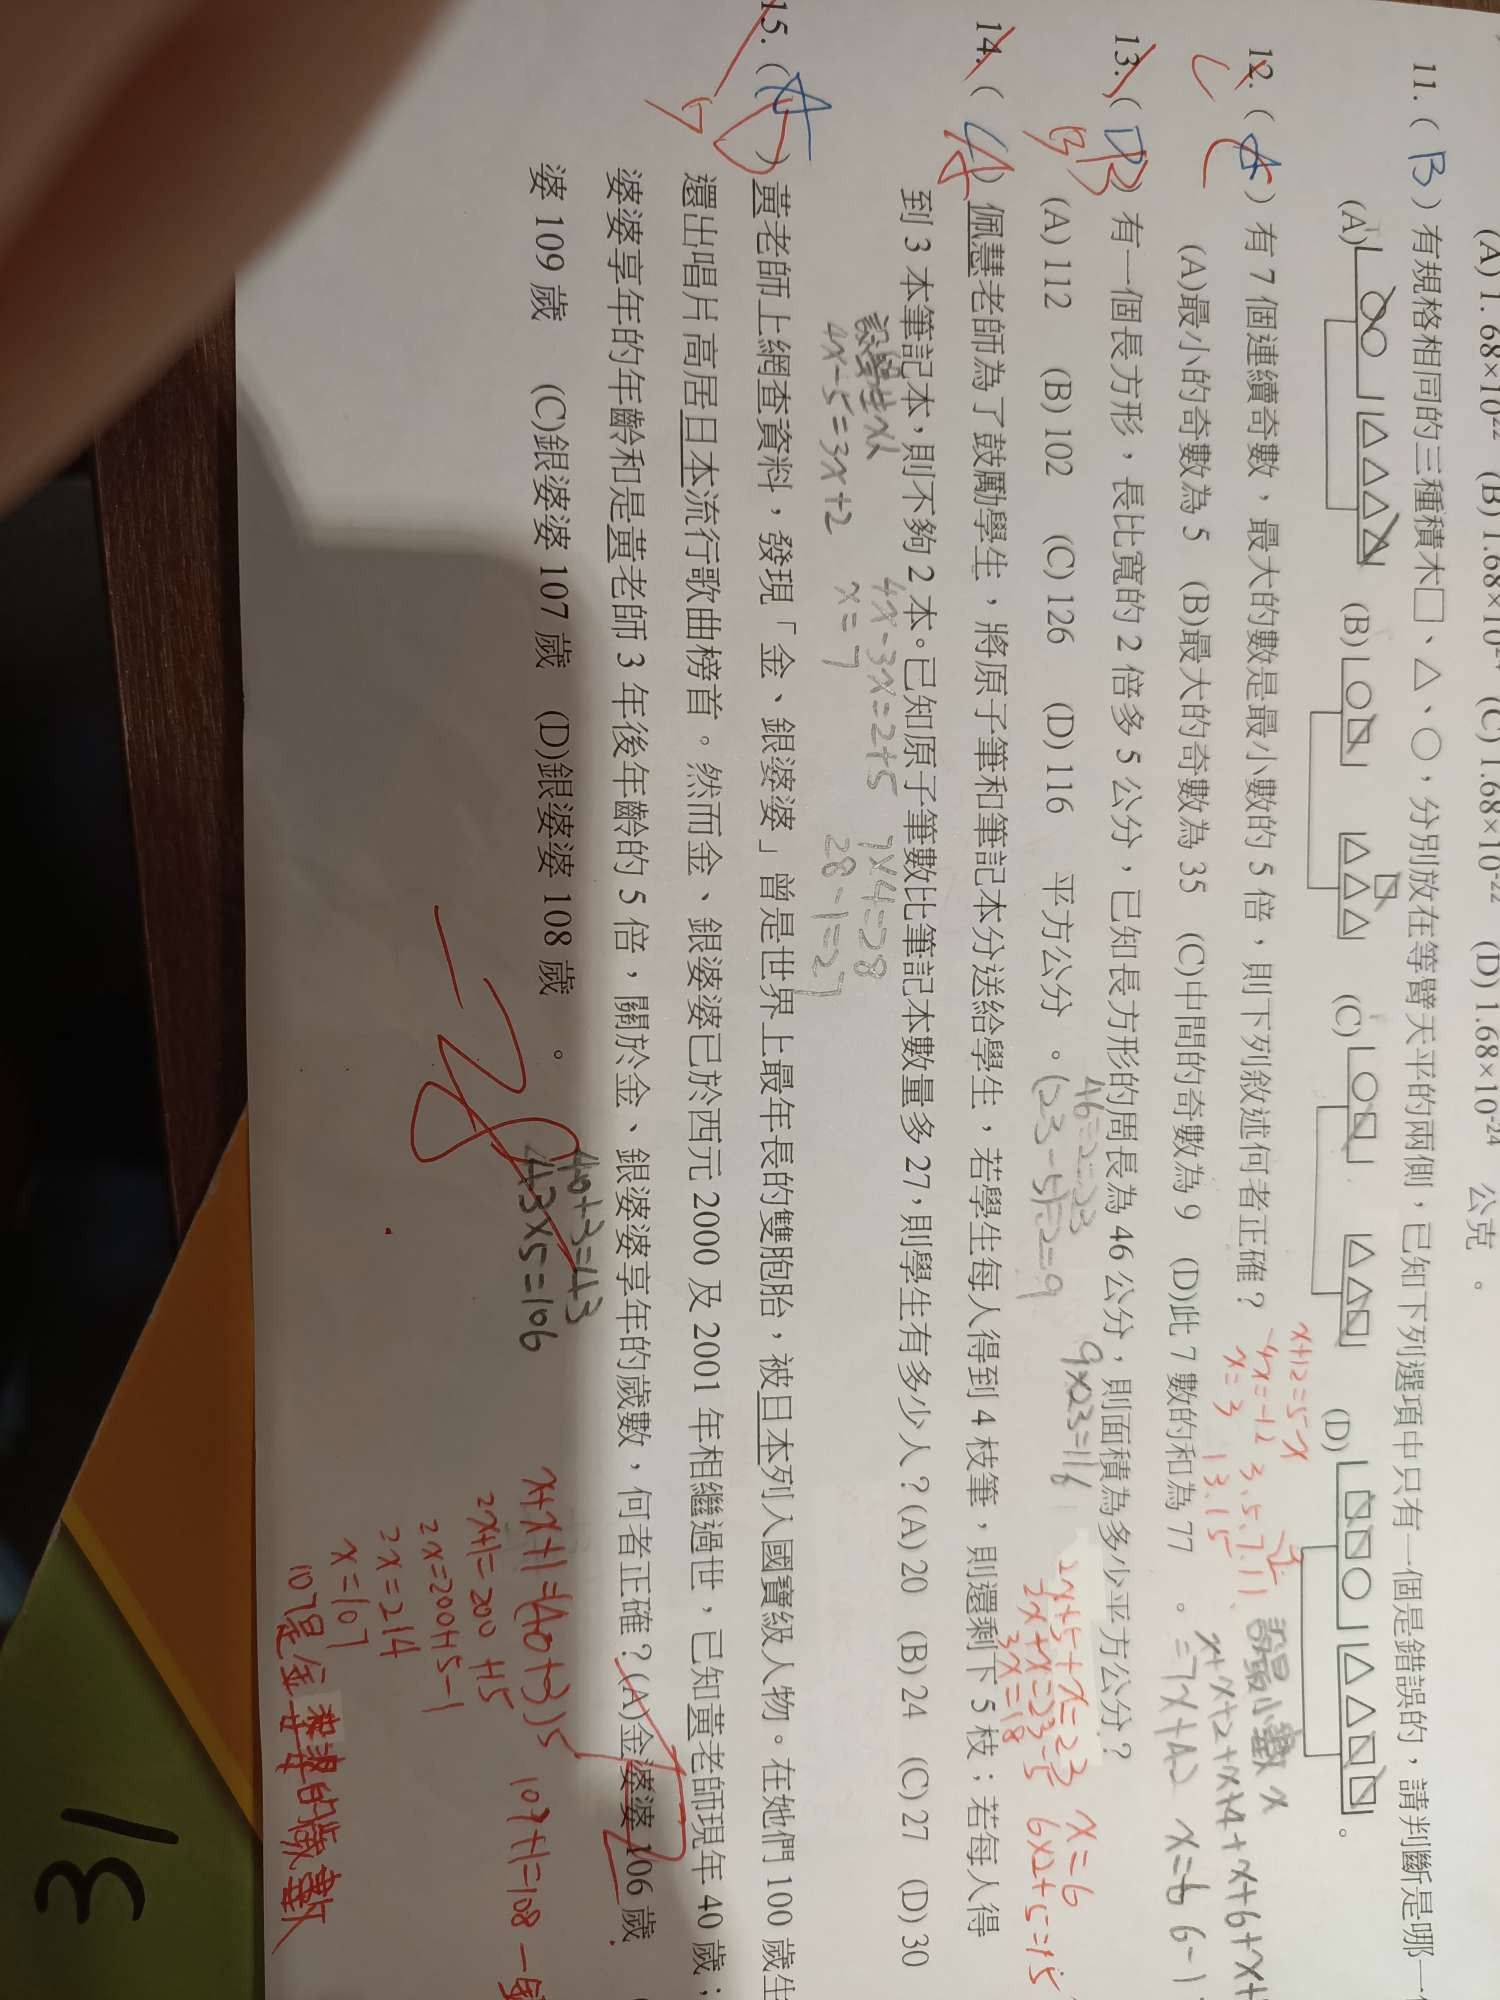 (A) 1.68×10⁻²² (B) 1.68×10⁻²⁴ (C) 1.68×10⁻²² (D) 1.68×10⁻²⁴ 公克 。
11. ( B ) 有規格相同的三種積木□、△、○,分別放在等臂天平的兩側,已知下列選項中只有一個是錯誤的,請判斷是哪一
(A) (B) (C) (D) 。
12. ( ) 有 7 個連續奇數,最大的數是最小數的 5 倍,則下列敘述何者正確?
(A)最小的奇數為 5 (B)最大的奇數為 35 (C)中間的奇數為 9 (D)此 7 數的和為 77 。
C
x+12=5x
-4x=-12
x=3
3.5.7.11.
13.15
設最小數 x
x+x+2+x+4+x+6+x+
=7x+42 x=6 6-1
13. ( ) 有一個長方形,長比寬的 2 倍多 5 公分,已知長方形的周長為 46 公分,則面積為多少平方公分?
(A) 112 (B) 102 (C) 126 (D) 116 平方公分 。
B
46÷2=23
(23-5)÷2=9
9×23=116
2x+5+x=23
2x+x=23-5
3x=18
x=6
6×2+5=15
14. ( ) 佩慧老師為了鼓勵學生,將原子筆和筆記本分送給學生,若學生每人得到 4 枝筆,則還剩下 5 枝;若每人得
到 3 本筆記本,則不夠 2 本。已知原子筆數比筆記本數量多 27,則學生有多少人?(A) 20 (B) 24 (C) 27 (D) 30
設學生x人
4x-5=3x+2
4x-3x=2+5
x=7
7×4=28
28-1=27
15. ( ) 黃老師上網查資料,發現「金、銀婆婆」曾是世界上最年長的雙胞胎,被日本列入國寶級人物。在她們 100 歲生
還出唱片高居日本流行歌曲榜首。然而金、銀婆婆已於西元 2000 及 2001 年相繼過世,已知黃老師現年 40 歲;
婆婆享年的年齡和是黃老師 3 年後年齡的 5 倍,關於金、銀婆婆享年的歲數,何者正確?(A)金婆婆 106 歲
婆 109 歲 (C)銀婆婆 107 歲 (D)銀婆婆 108 歲 。
40+3=43
43×5=106
x+x+1=(40+3)5
2x+1=200+15
2x=200+15-1
2x=214
x=107
107+1=108
-28
31